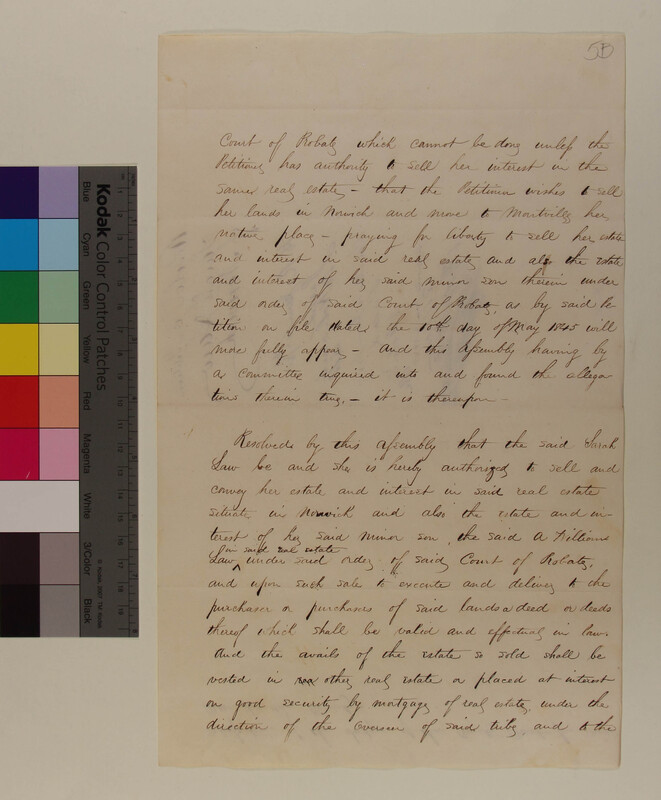 5D
Court of Probate which cannot be done unless the
Petitioner has authority to sell her interest in the
same real estate - that the Petitioner wishes to sell
her lands in Norwich and move to Montville her
native place - praying for liberty to sell her estate
and interest in said real estate and also the estate
and interest of her said minor son therein under
said order of said Court of Probate, as by said Pe
tition on file dated the 10th day of May 1845 will
more fully appear - and this Assembly having by
a Committee inquired into and found the allega
tions therein true. - it is thereupon -
Resolved by this Assembly that the said Sarah
Law be and she is hereby authorized to sell and
convey her estate and interest in said real estate
situate in Norwich and also the estate and in-
terest of her said minor son, the said A Williams
in said real estate
Law, under said order of said Court of Probate,
and upon such sale to execute and deliver to the
purchaser or purchasers of said lands a deed or deeds
thereof which shall be valid and effectual in law.
And the avails of the estate so sold shall be
vested in other real estate or placed at interest
on good security by mortgage of real estate, under the
direction of the overseer of said tribe, and to the
Kodak Color Control Patches
Blue
Cyan
Green
Yellow
Red
Magenta
White
3/Color
Black